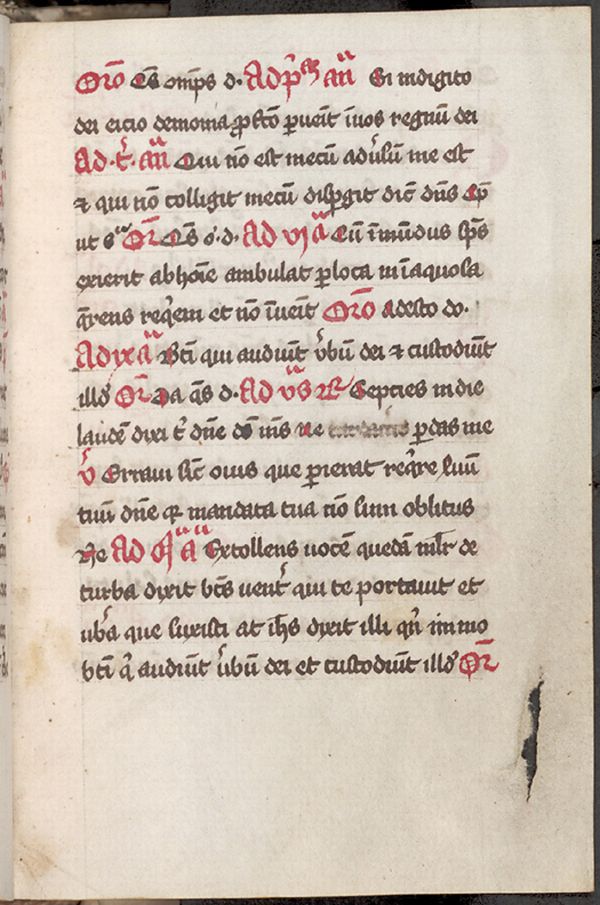 Oro Os omps d. Ad p̃ am an̄ Si indigito
dei eicio demonia ꝓfc̄o ꝑuen̄t in uos regnū dei
Ad · t̾ · an̄ Qui no est mecū adu̾sum me est
⁊ qui no colligit mecū disꝑgit dic̄ dn̄s Cp̄
ut sᵃ Or̄ Os o. d. Ad vi a Cū īmūdus sp̄s
exierit abhoīe ambulat ꝑ loca inīaquosa
q̄rens reqͥem et no īuen̄t Oro adesto do.
Ad ix a Bt̄i qui audiūt u̾bū dei ⁊ custodiūt
illd̾ Or̄ Da q̄s d. Ad vs r̄ Septies in die
laudē dixi t̾ dn̄e ds̄ m̄s ne ꝑdas me
v̾ Erraui sic̄ ouis que ꝑierat reqͥre suū
tuū dn̄e qꝛ mandata tua no sum oblitus
Ne Ad m̄ a Extollens uocē quedā ml̾r de
turba dixit bt̄s uent̾ qui te portauit et
ub̾a que suxisti at ih̄s dixit illi qn̄ immo
bt̄i qͥ audiūt u̾bū dei et custodiūt illd̾ Or̄